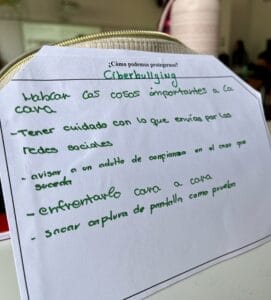 ¿Cómo podemos protegernos?
Ciberbullying
Hablar las cosas importantes a la
cara
- Tener cuidado con lo que envias por las
redes sociales
- avisar a un adulto de confianza en el caso que
suceda
- enfrentarlo cara a cara
- sacar captura de pantalla como prueba